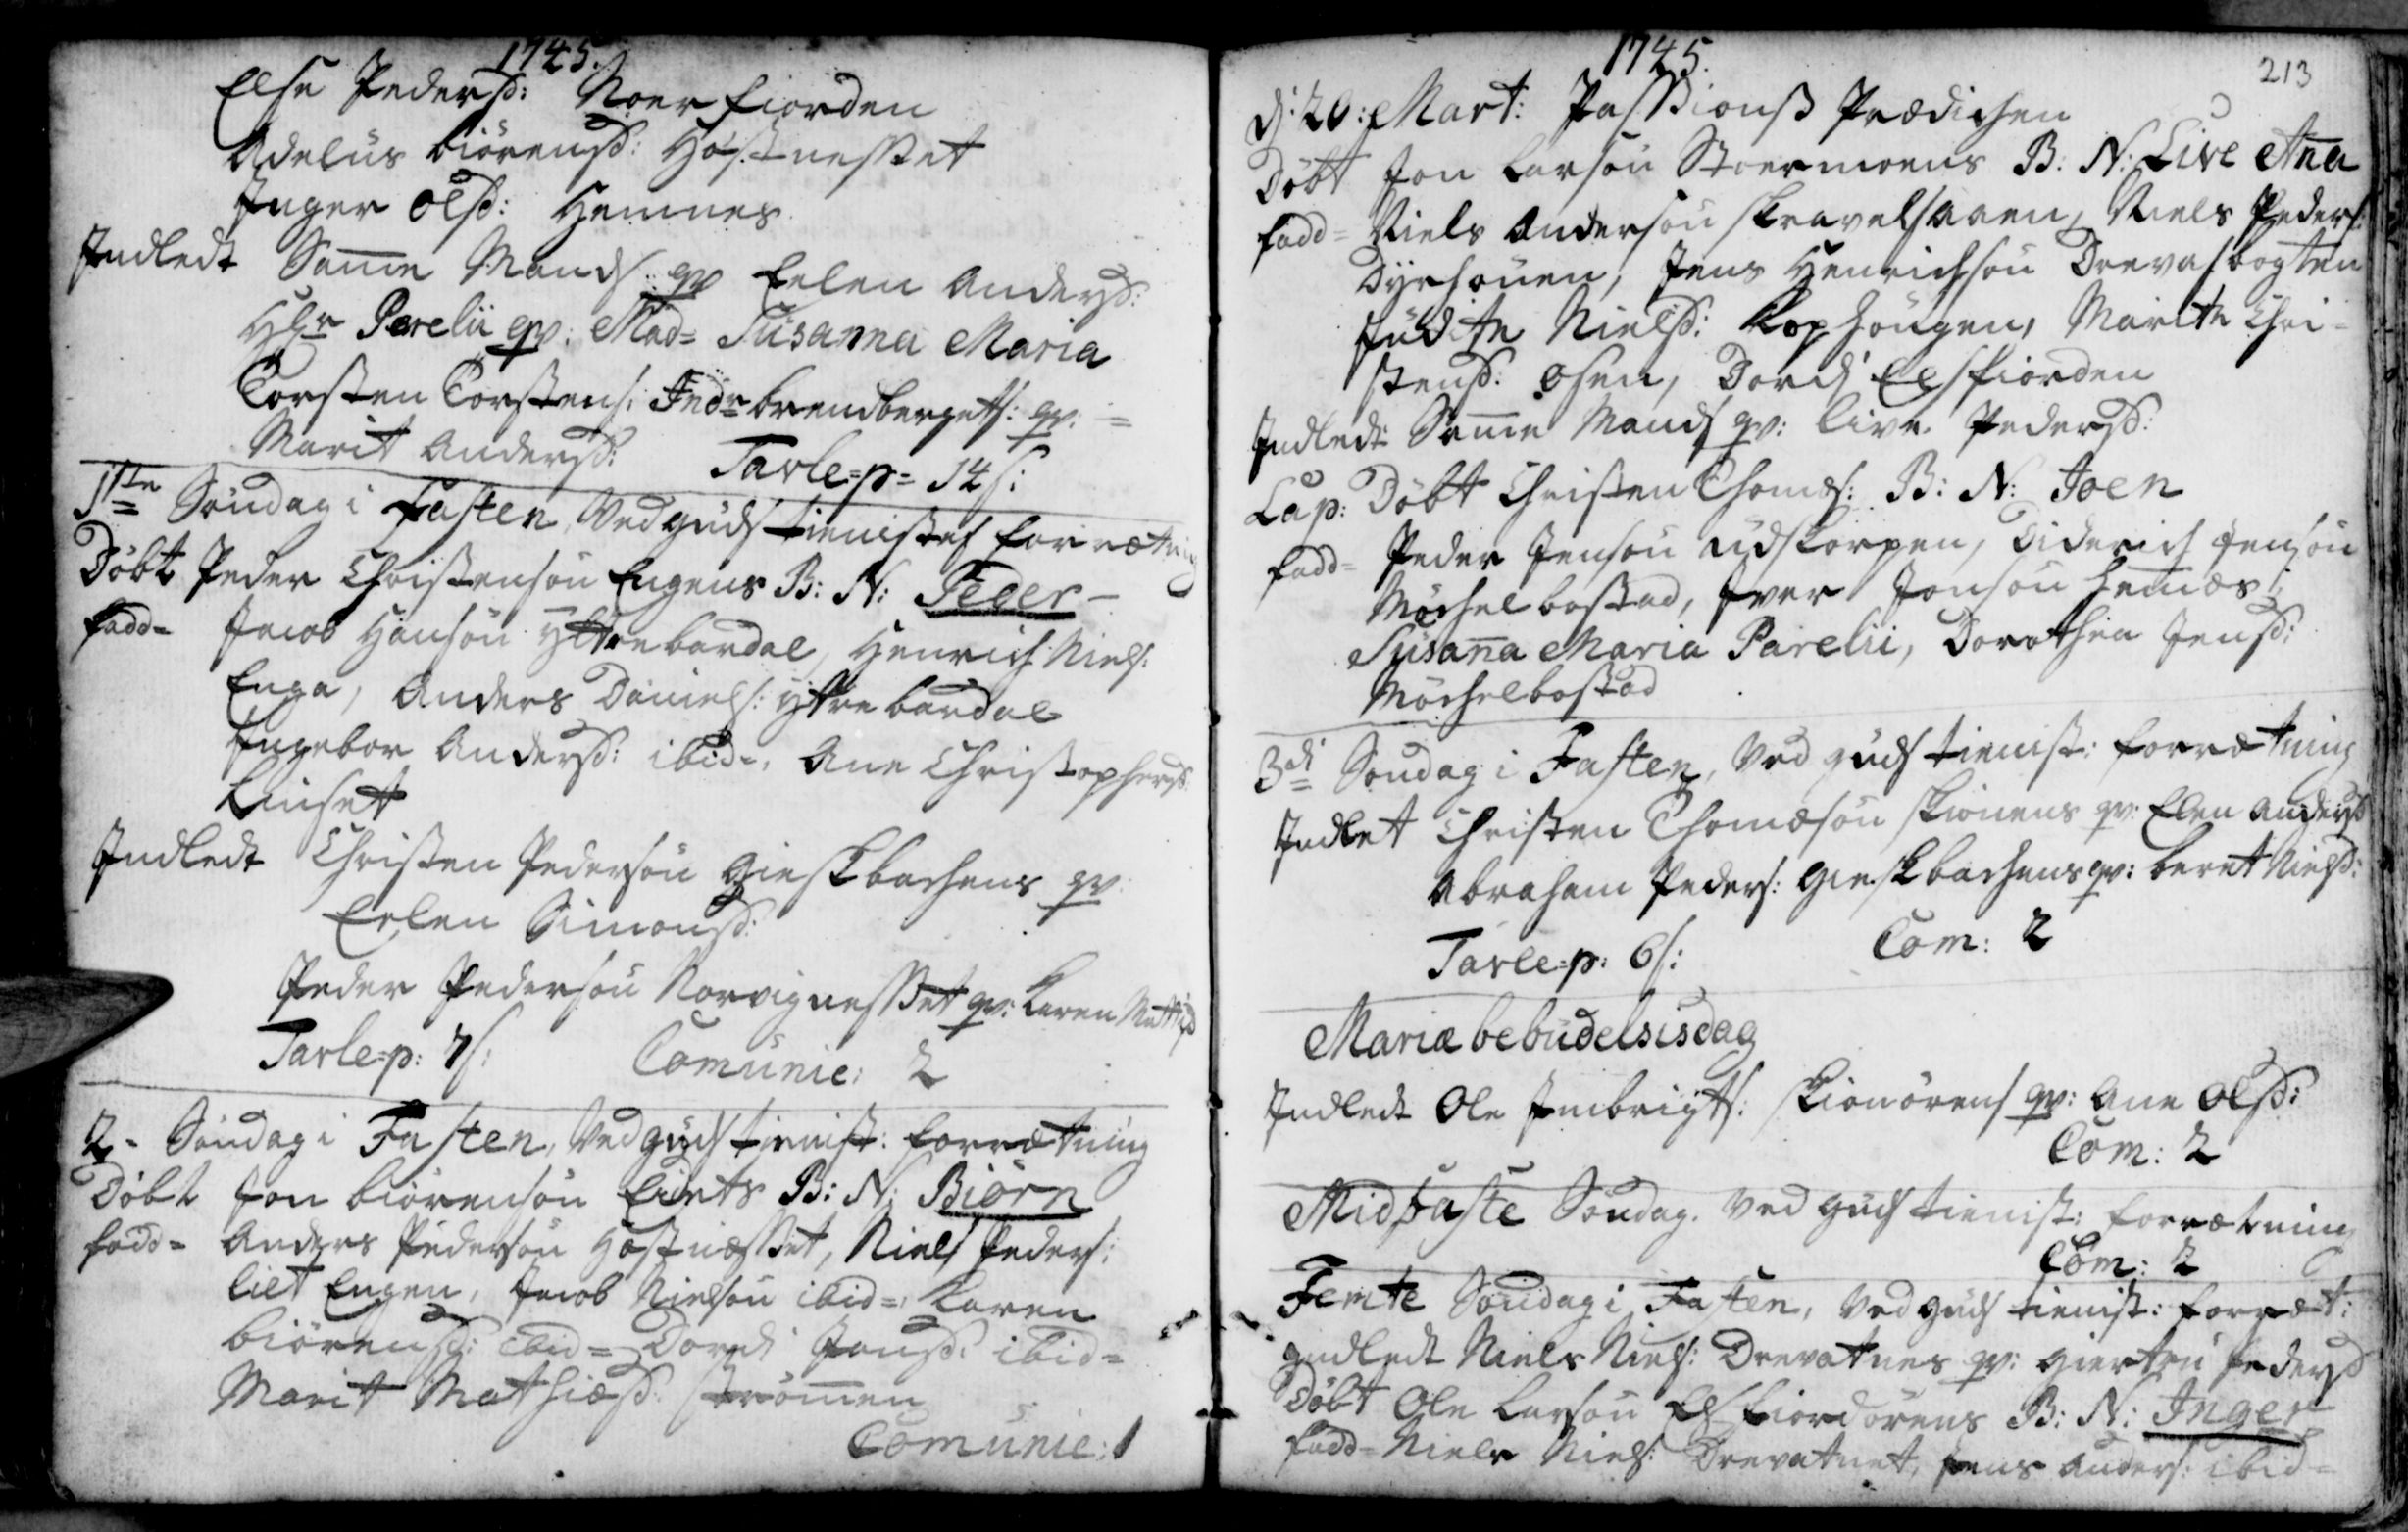 1745.
Else Pedersd: Noerfiorden
Adelus Biörensd: Höstnesset
Inger Olsd: Hemnes
Indledt Samme Mands qv Eelen Andersd:
Hr Parelii qv: Mad= Susanna Maria
Torsten Torstens: Indr brendbergets: qv: =
Marit Andersd: Tavle=p= 14 s:
1ste Söndag i Fasten, Ved gudstienistes forrætning
Döbt Peder Christensön Engens B: N: Peder -
fadd= Jacob Hansön Ÿttrebardal, Henrich Niels:
Enga, Anders Daniels: ÿtre bardal
Ingebor Andersd: ibid=, Ane Christophersd:
Leuset
Indledt Christen Pedersön Gieskbachens qv:
Eelen Simonsd:
Peder Pedersön Norvignesset qv: Karen
Tavle=p: 7 s: Comunic: 2
2= Söndag i Fasten, Ved gudstienist: forrætning
Döbt Jon Biörensön Eidets B: N: Biörn
fadd= Anders Pedersön Höstnæsset, Niels Peders:
liet Engen, Jacob Nielsön ibid=, Karen
Biörensd: ibid= Dordi Jonsd: ibid=
Marit Mathiæsd: Strömmen
Comunic: 1
1745.
213
D: 20: Mart: Passions Prædichen
Döbt Jon Larsön Stoermoens B: N: Live Ana
fadd= Niels Andersön Skravelsaaen, Niels Peders:
Dyrhouen, Jens Henrichsön Drevasbogten
Judite Nielsd: Kophougen, Marite Chri=
stensd: Osen, Dordi Elsfiorden
Indledt Samme Mands qv: Live Pedersd:
Lap: Döbt Christen Thomæs: B: N: Joen
fadd= Peder Jensön Udskorpen, Diderich Jensön
Möchelbostad, Iver Jonsön Hemnæs,
Susana Maria Parelii, Dorothea Jensd:
Möchelbostad
3di Söndag i Fasten, Ved gudstienist: forrætning
Indlet Christen Thomæsön Skionens qv: Elen Andersd
Abraham Peders: Gieskbachens qv: Beret Nielsd:
Tavle=p: 6 s: Com: 2
Mariæ bebudelsisdag
Indledt Ole Imbrigts: Skionörens qv: Ane Olsd:
Com: 2
Midfaste Söndag. Ved gudstienist: forrætning
Com: 2
Femte Söndag i Fasten, Ved gudstienist: forræt:
Indledt Niels Niels: Drevatnes qv: Giertru Pedersd
Döbt Ole Larsön Elsfiordörens B: N: Inger
fadd= Niels Niels: Drevatnet, Jens Anders: ibid=